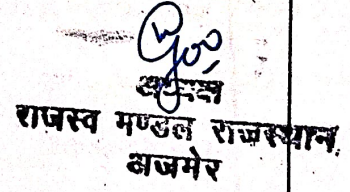 अध्यक्ष
राजस्व मण्डल राजस्थान,
अजमेर